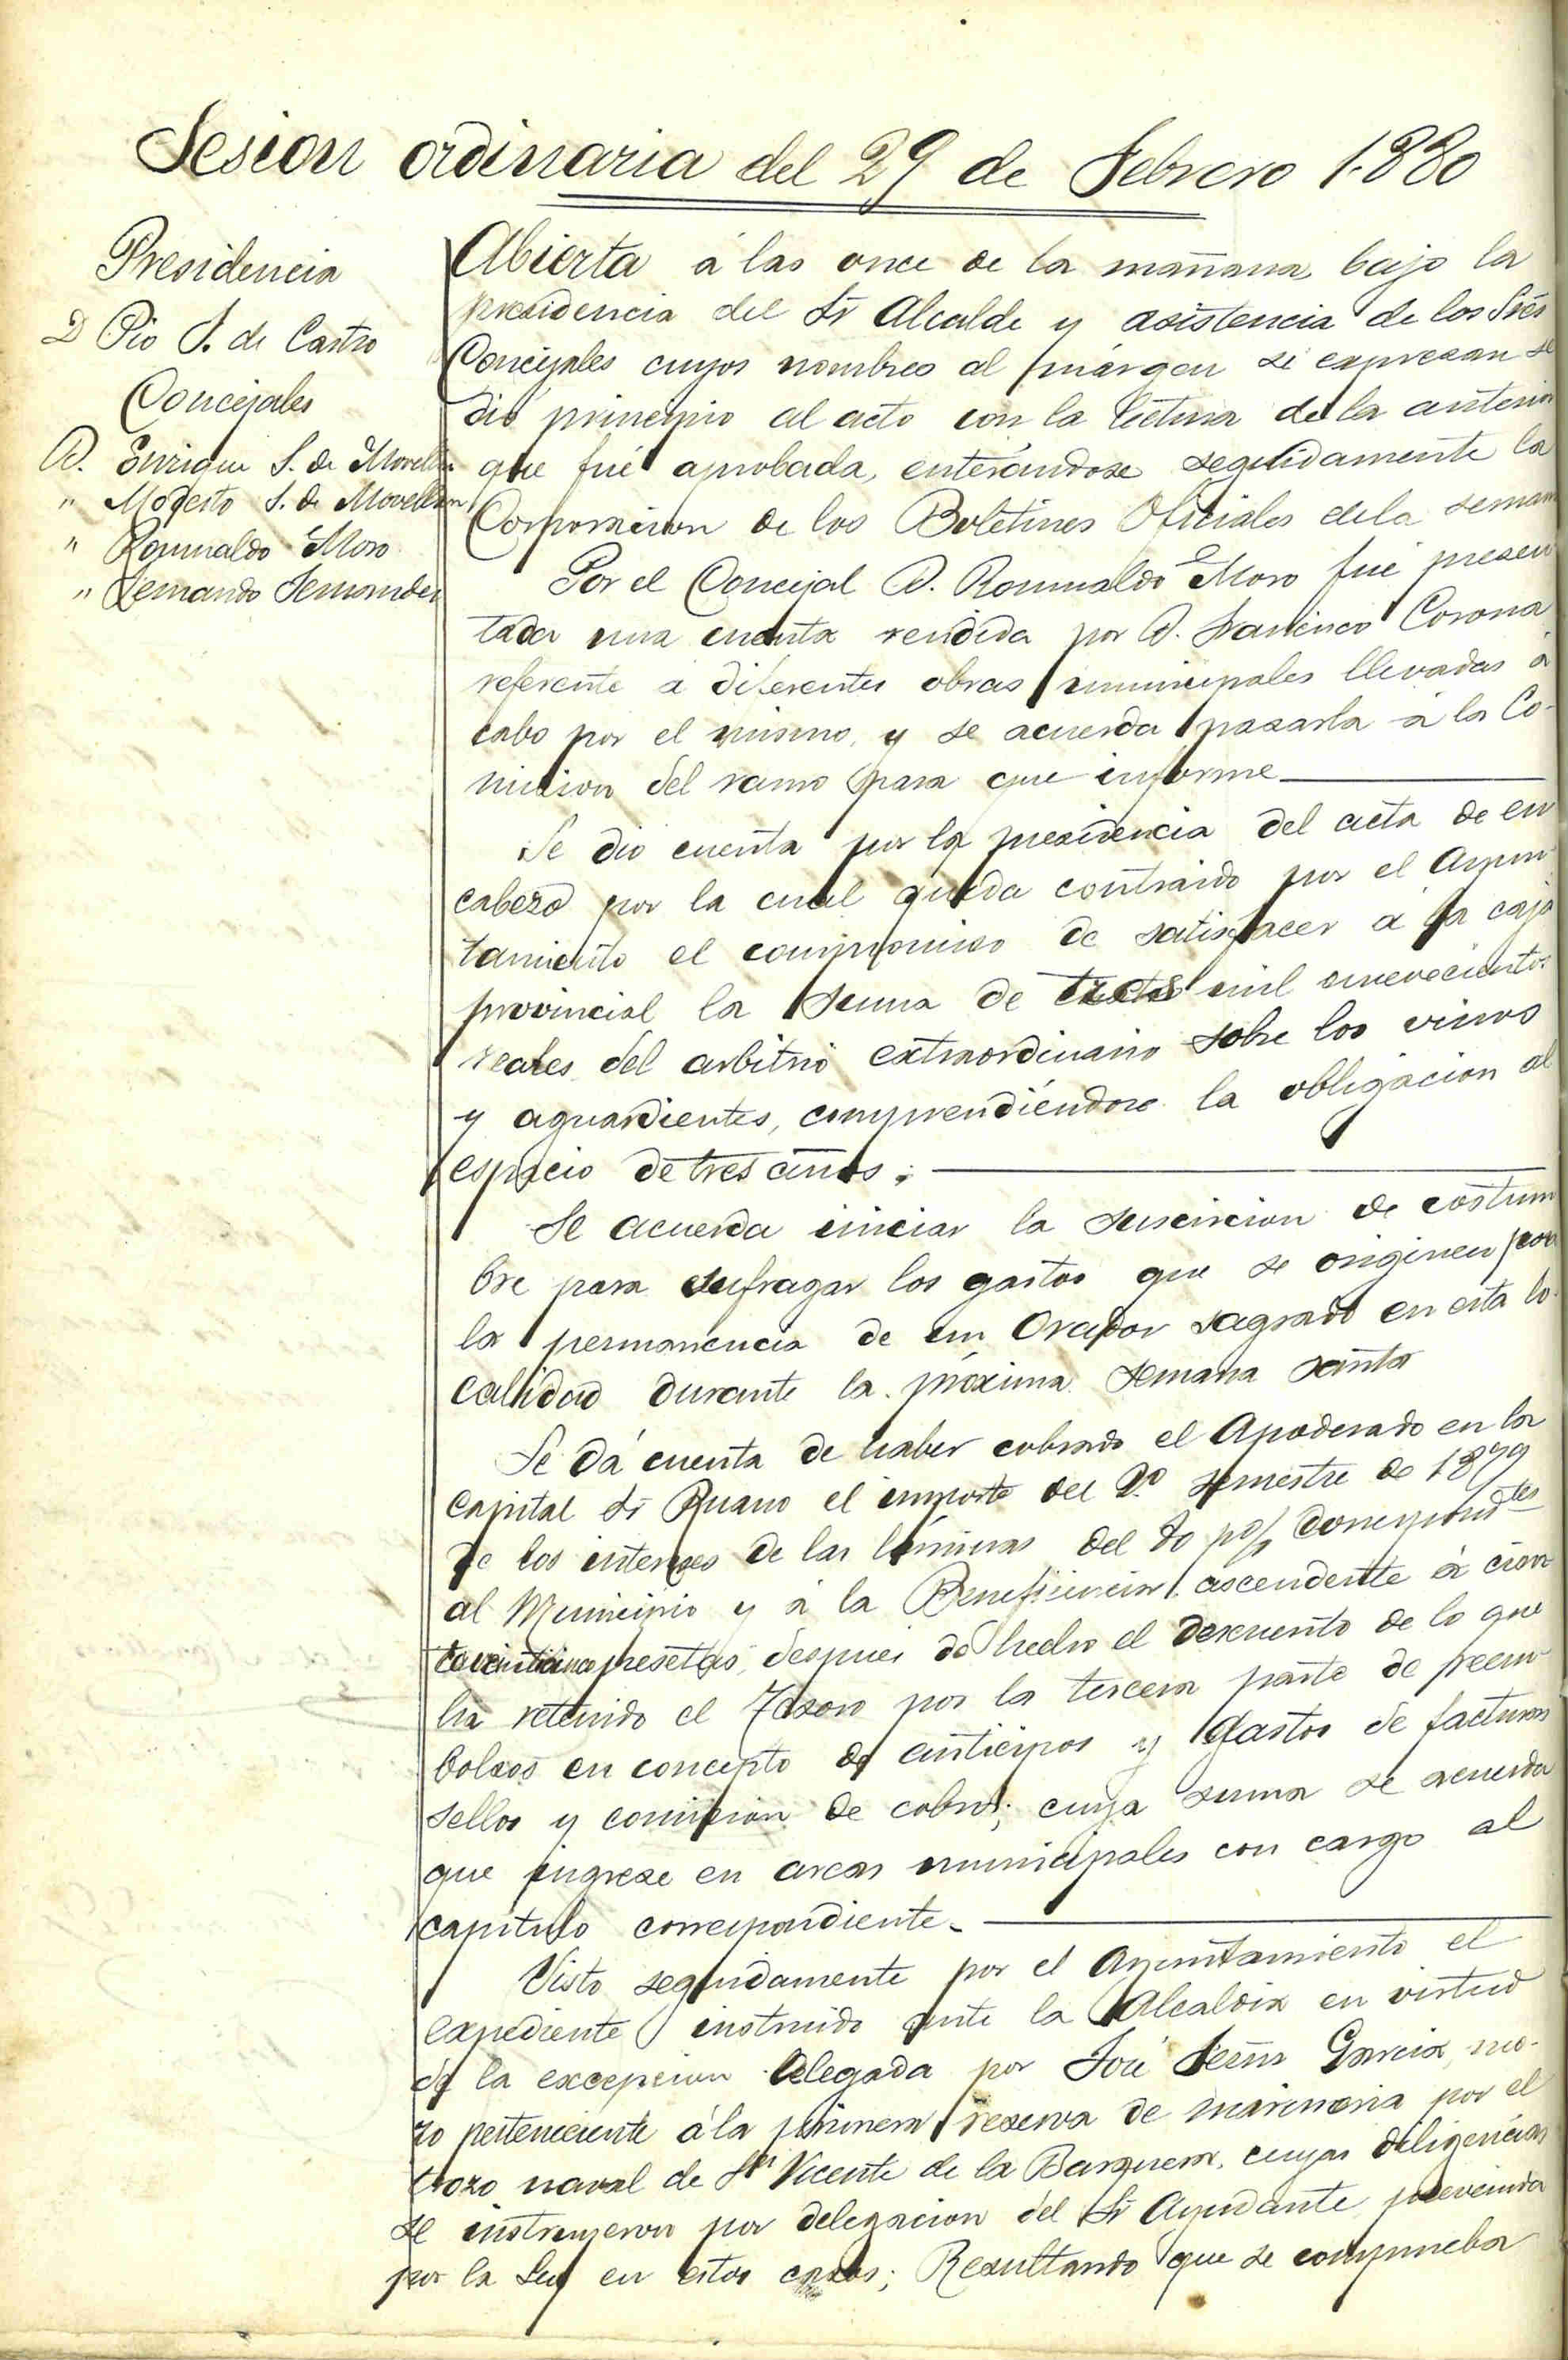 Sesion ordinaria del 29 de Febrero 1.880
Presidencia
D Pio S. de Castro
Concejales
D. Enrique S. de Movellan
" Modesto S. de Movellan
" Romualdo Moro
" Fernando Fernandez
Abierta á las once de la mañana, bajo la
presidencia del Sr Alcalde y asistencia de los Sres
Concejales cuyos nombres al márgen se expresan se
dió principio al acto con la lectura de la anterior
que fué aprobada, enterándose seguidamente la
Corporacion de los Boletines Oficiales de la semana
Por el Concejal D. Romualdo Moro fué presen
tada una cuenta rendida por D. Francisco Corona
referente a diferentes obras municipales llevadas á
cabo por el mismo, y se acuerda pasarla á la Co-
mision del ramo para que informe
Se dió cuenta por la presidencia del acta de en
cabezo por la cual queda contraido por el Ayun-
tamiento el compromiso de satisfacer á la caja
provincial la suma de tres mil nuevecientos
reales del arbitrio extraordinario sobre los vinos
y aguardientes, comprendiéndose la obligacion al
espacio de tres años.
Se acuerda iniciar la suscricion de costum
bre para sufragar los gastos que se originen por
la permanencia de un Orador sagrado en esta lo-
calidad durante la próxima semana santa
Se dá cuenta de haber cobrado el Apoderado en la
capital Sr Ruano el importe del 2º semestre de 1879
de los intereses de las láminas del 80 p% correspondtes
al Municipio y á la Beneficencia, ascendente á
pesetas, despues de hecho el descuento de lo que
ha retenido el Tesoro por la tercera parte de reem-
bolsos en concepto de anticipos y gastos de facturas
sellos y comision de cobro; cuya suma se acuerda
que ingrese en arcas municipales con cargo al
capitulo correspondiente.
Visto seguidamente por el Ayuntamiento el
expediente instruido ante la Alcaldia en virtud
de la excepcion alegada por José Garcia, mo-
zo perteneciente á la primera reserva de marineria por el
trozo naval de Sn Vicente de la Barquera, cuyas diligencias
se instruyeron por delegacion del Sr Ayudante, prevenida
por la Ley en estos casos; Resultando que se comprueba